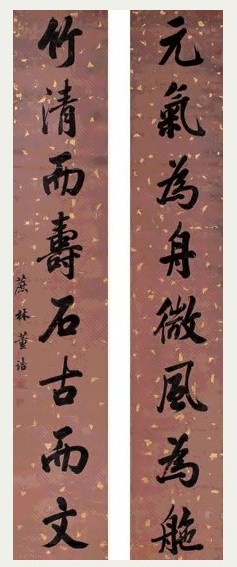 元氣為舟微風為柂
竹清而壽石古而文
蔗林董誥